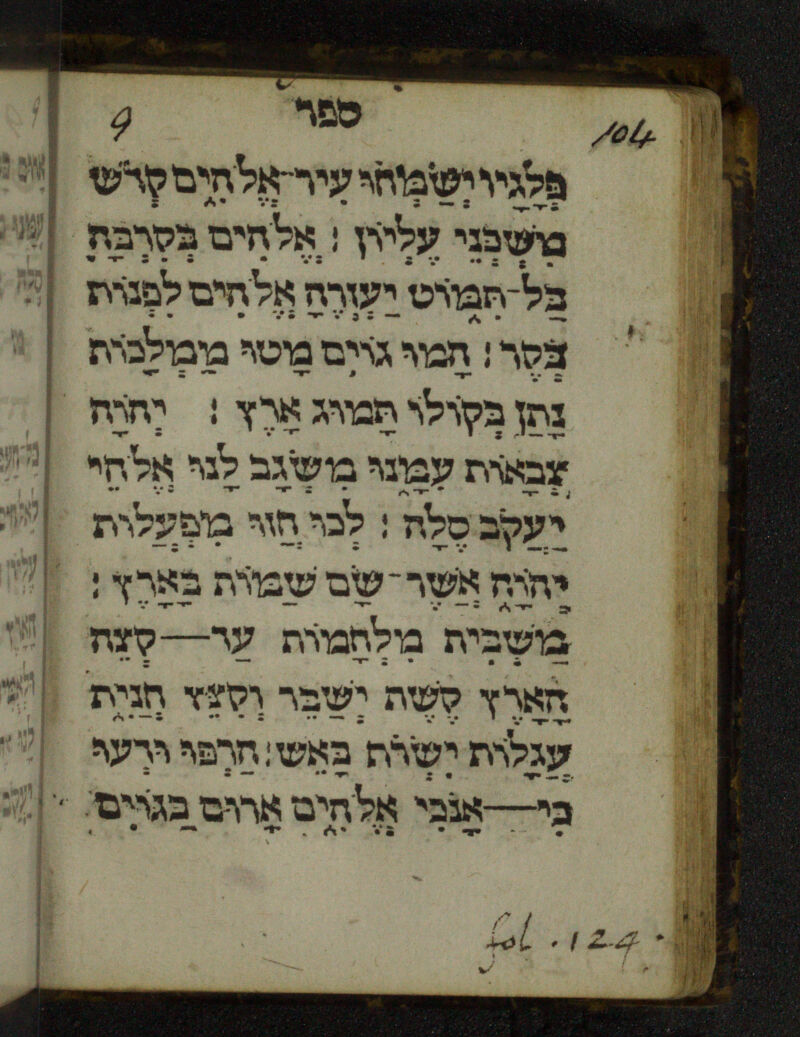 9 ספר 104
פְּלָגָיו יְשַׂמְּחוּ עִיר־אֱלֹהִים קְדֹשׁ
מִשְׁכְּנֵי עֶלְיוֹן : אֱלֹהִים בְּקִרְבָּהּ
בַּל־תִּמּוֹט יַעְזְרֶהָ אֱלֹהִים לִפְנוֹת
בֹּקֶר : הָמוּ גוֹיִם מָטוּ מַמְלָכוֹת
נָתַן בְּקוֹלוֹ תָּמוּג אָרֶץ : יְהֹוָה
צְבָאוֹת עִמָּנוּ מִשְׂגָּב לָנוּ אֱלֹהֵי
יַעֲקֹב סֶלָה : לְכוּ חֲזוּ מִפְעֲלוֹת
יְהֹוָה אֲשֶׁר־שָׂם שַׁמּוֹת בָּאָרֶץ :
מַשְׁבִּית מִלְחָמוֹת עַד־קְצֵה
הָאָרֶץ קֶשֶׁת יְשַׁבֵּר וְקִצֵּץ חֲנִית
עֲגָלוֹת יִשְׂרֹף בָּאֵשׁ : הַרְפּוּ וּדְעוּ
כִּי־אָנֹכִי אֱלֹהִים אָרוּם בַּגּוֹיִם
fol. 124.